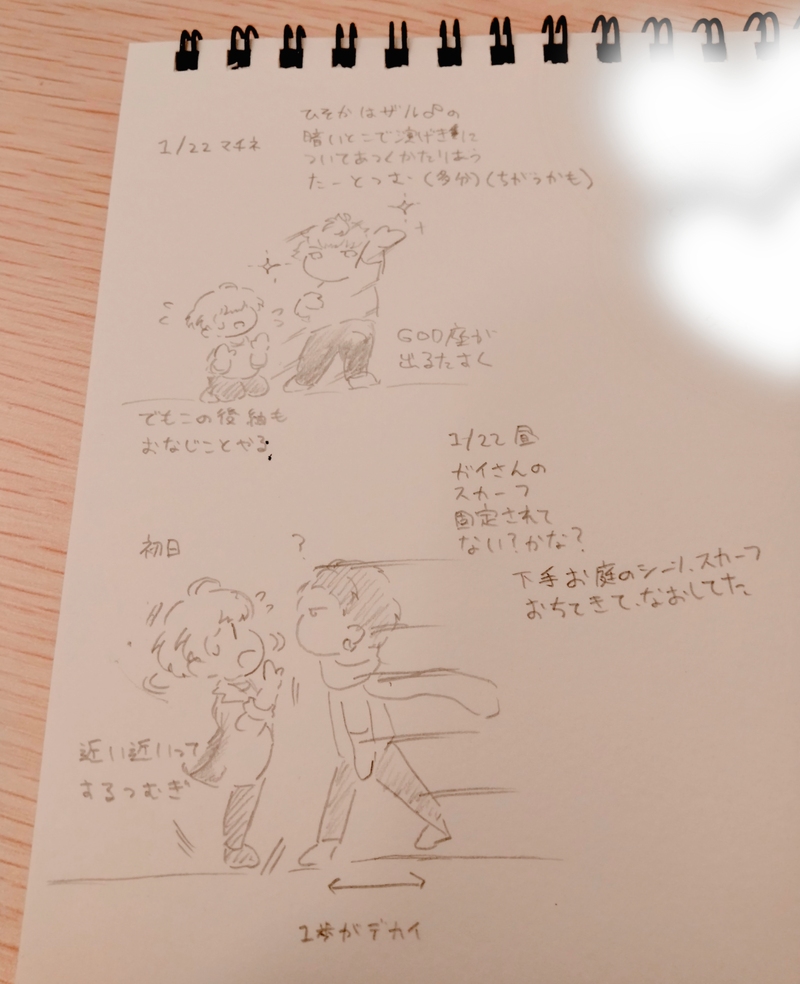 1/22 マチネ
ひそかはザル♂の
暗いとこで演げきに
ついてあつくかたりあう
たーとつむ(多分)(ちがうかも)
GOD座が
出るたさく
でもこの後 紬も
おなじことやる
1/22 昼
ガイさんの
スカーフ
固定されて
ない?かな?
下手お庭のシーン、スカーフ
おちてきて、なおしてた
初日
?
近い近いって
するつむぎ
1歩がデカイ